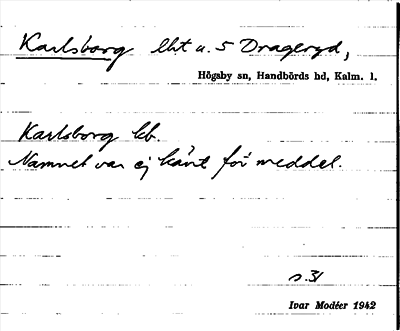 Karlsborg lht u. 5 Drageryd,
Högsby sn, Handbörds hd, Kalm. l.
Karlsborg kb.
Namnet var ej känt för meddel.
s. 31
Ivar Modéer 1942